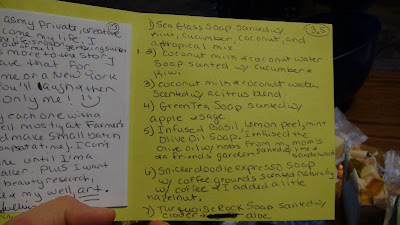 as my private, creative
come my life. I
more to the story
ave that for
me or a New York
You'll laugh then
Only me! :)
each one with
ell mostly at Farmer's
make small batch
soaps at a time). I can't
ne until I'm a
aler. Plus I want
beauty research,
my well, art.
3.5
1) Sea Glass Soap scented w/
Kiwi, cucumber, coconut, and
a tropical mix
2) coconut milk & coconut water
Soap scented w/ cucumber &
Kiwi
3) coconut milk & coconut water
Scented w/ a citrus blend
4) Green Tea Soap scented w/
apple & sage
5) Infused Basil, Lemon peel, mint
Olive Oil Soap. I infused the
Olive oil w/ herbs from my mom's
& a friend's garden scented lime &
sandalwood
6) Snickerdoodle Expresso Soap
w/ coffee grounds scented naturally
w/ coffee & I added a little
hazelnut.
7) Turquoise Rock Soap scented w/
clover & aloe